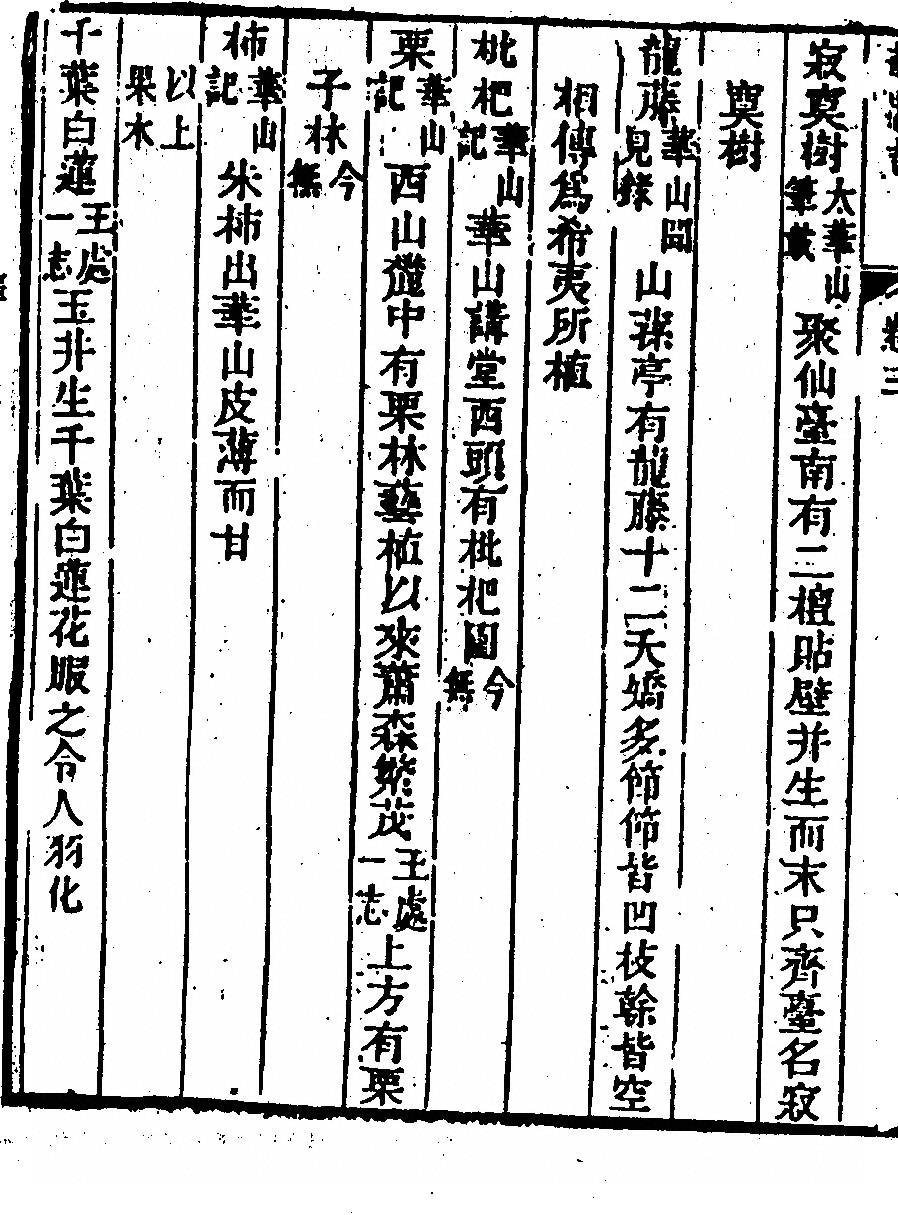 卷三
寂寞樹太華山筆載聚仙臺南有二檀貼壁并生而末只齊臺名寂
寞樹
龍藤華山聞見錄山蓀亭有龍藤十二夭嬌多節節皆凹枝榦皆空
相傳為希夷所植
枇杷華山記華山講堂西頭有枇杷園今無
栗華山記西山麓中有栗林藝植以來蕭森繁茂王處一志上方有栗
子林今無
柿華山記朱柿出華山皮薄而甘
以上果木
千葉白蓮王處一志玉井生千葉白蓮花服之令人羽化